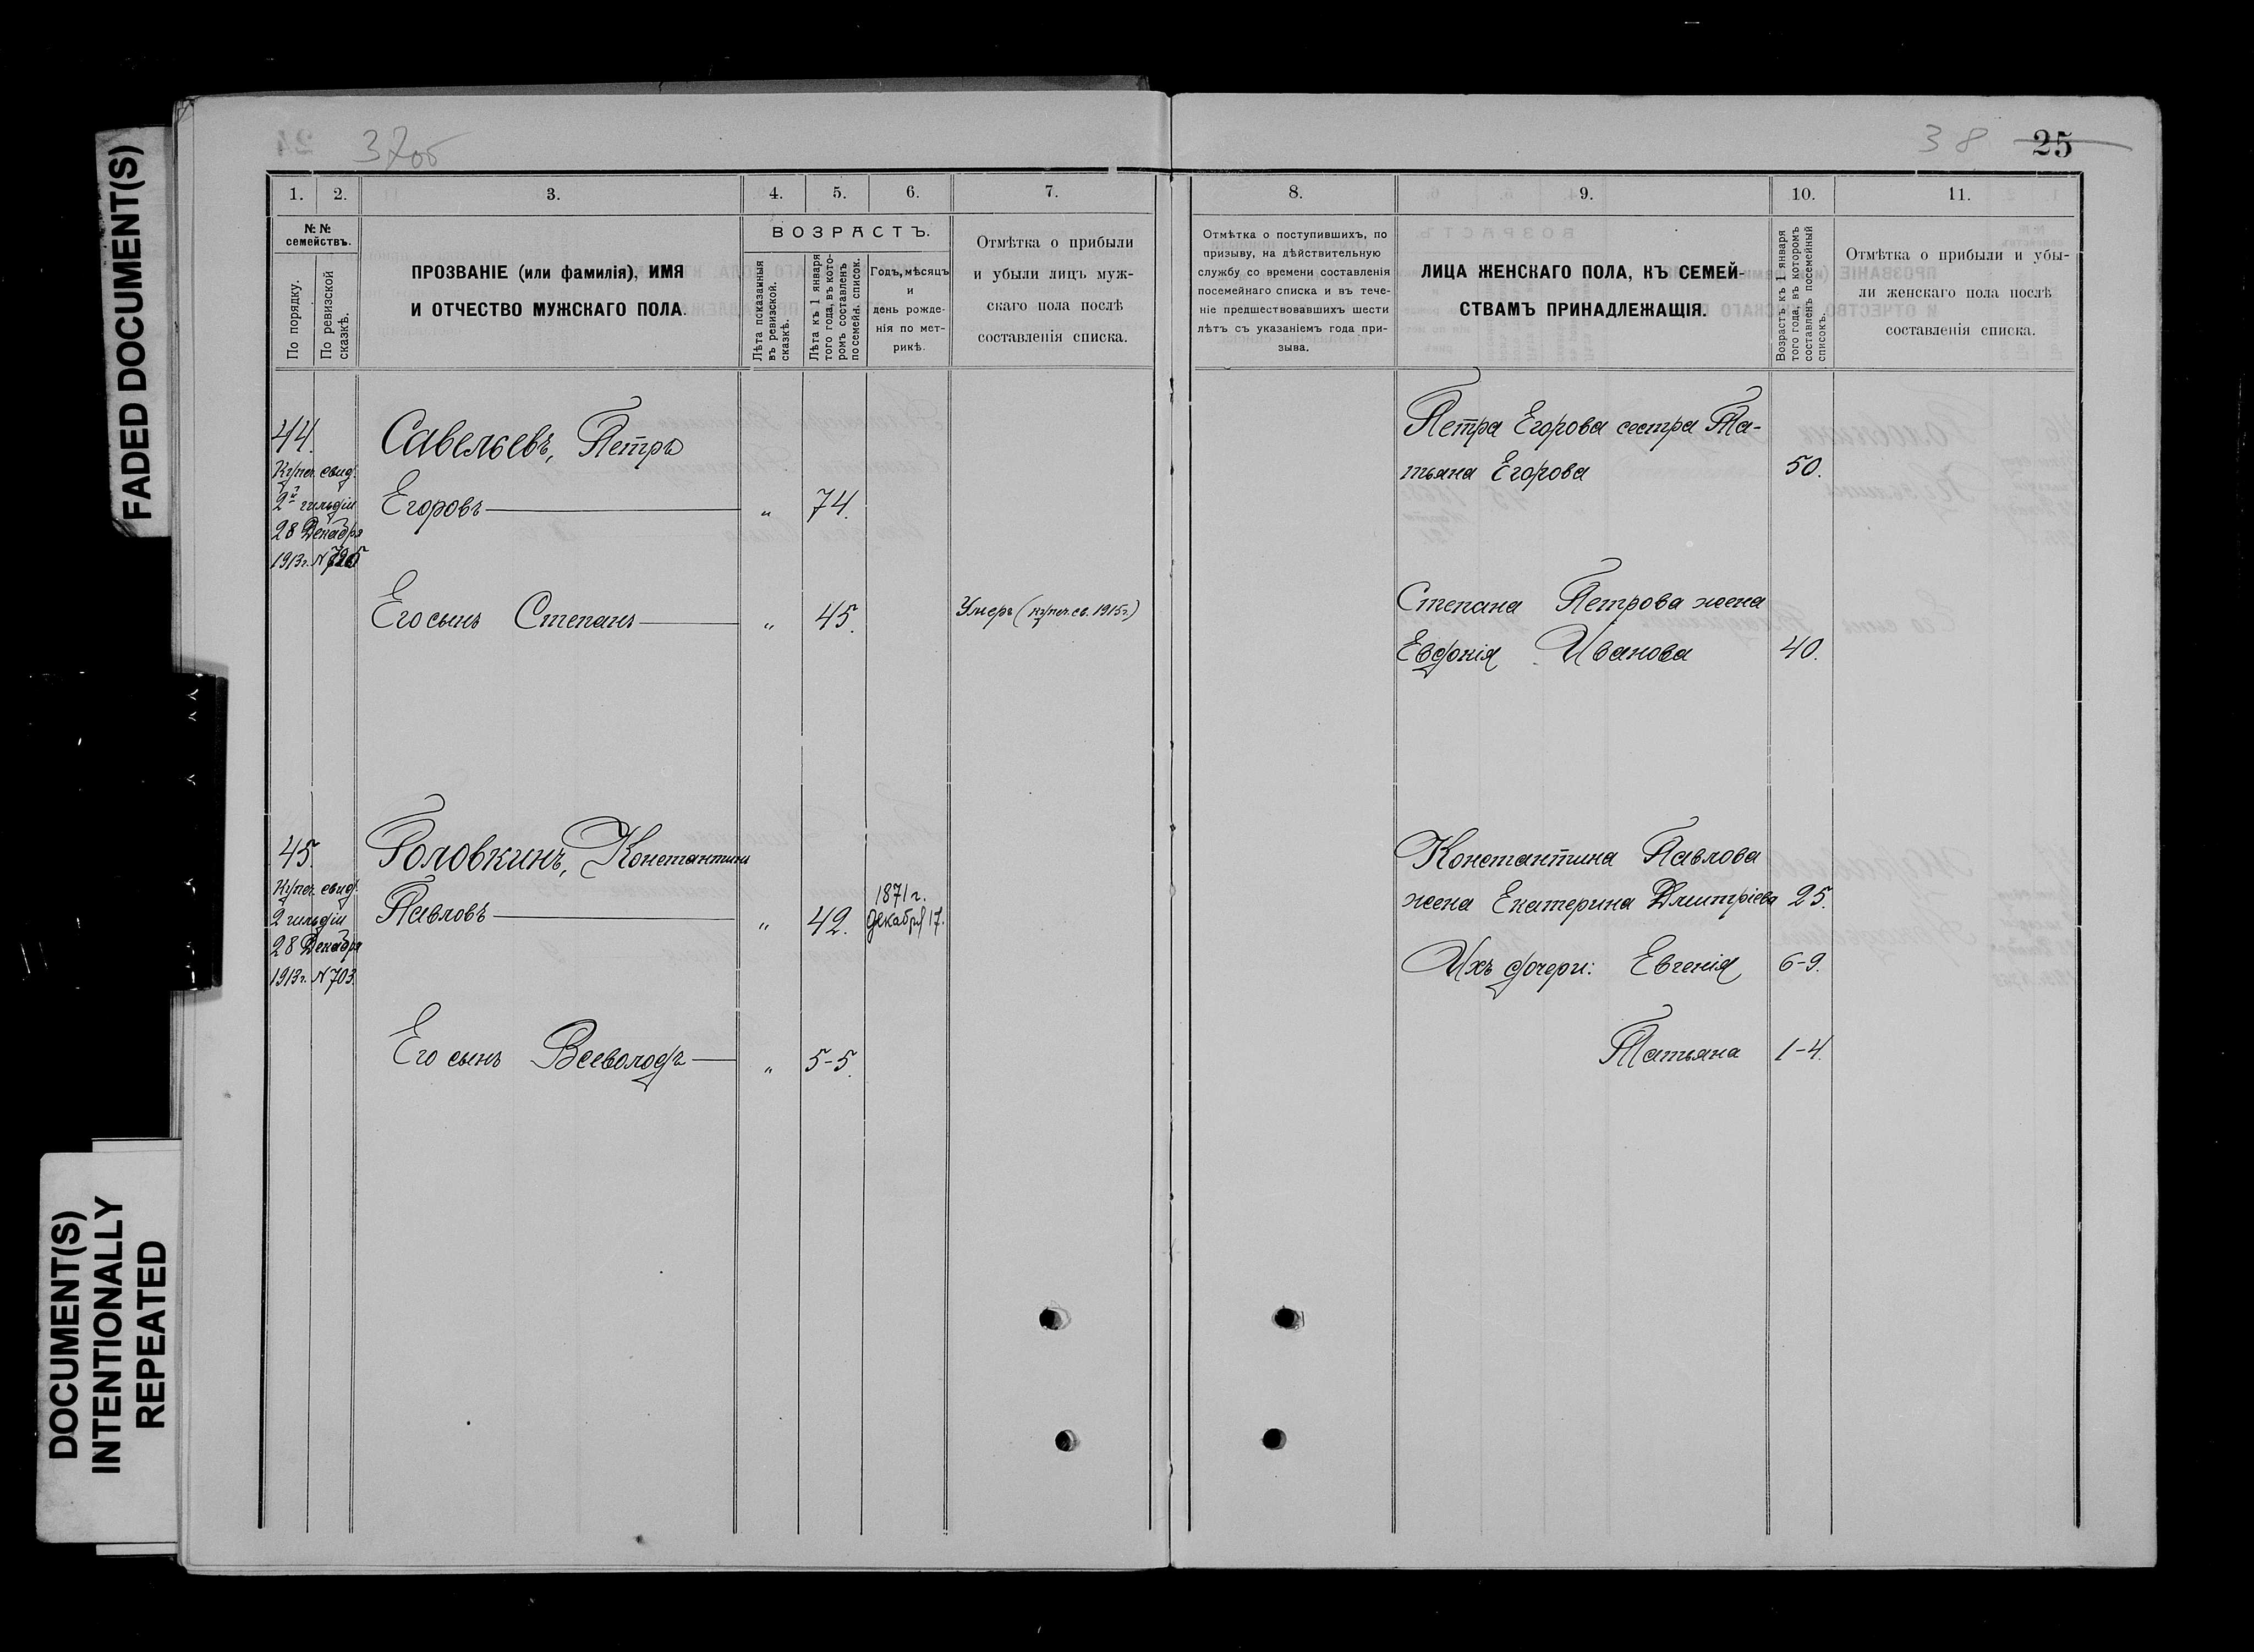 FADED DOCUMENT(S)
DOCUMENT(S)
INTENTIONALLY
REPEATED
37об
38 25
1. 2. 3. 4. 5. 6. 7.
№ №
семействъ.
По порядку.
По ревизской
сказкѣ.
ПРОЗВАНІЕ (или фамилія), ИМЯ
И ОТЧЕСТВО МУЖСКАГО ПОЛА.
ВОЗРАСТЪ.
Лѣта показанныя
въ ревизской.
сказкѣ.
Лѣта къ 1 января
того года, въ кото-
ромъ составленъ
посемейн. список.
Годъ, мѣсяцъ
и
день рожде-
нія по мет-
рикѣ.
Отмѣтка о прибыли
и убыли лицъ муж-
скаго пола послѣ
составленія списка.
44.
Купеч. свид.
2й гильдіи
28 Декабря
1913г. №
Савельевъ, Петръ
Егоровъ " 74.
Его сынъ Степанъ " 45. Умеръ (купеч. св. 1915г.)
45.
Купеч. свид.
2 гильдіи
28 Декабря
1913г. № 703.
Головкинъ, Константинъ
Павловъ " 42. 1871г.
Декабря 17.
Его сынъ Всеволодъ " 5-5.
8. 9. 10. 11.
Отмѣтка о поступившихъ, по
призыву, на дѣйствительную
службу со времени составленія
посемейнаго списка и въ тече-
ніе предшествовавшихъ шести
лѣтъ съ указаніемъ года при-
зыва.
ЛИЦА ЖЕНСКАГО ПОЛА, КЪ СЕМЕЙ-
СТВАМЪ ПРИНАДЛЕЖАЩІЯ.
Возрастъ къ 1 января
того года, въ которомъ
составленъ посемейный
списокъ.
Отмѣтка о прибыли и убы-
ли женскаго пола послѣ
составленія списка.
Петра Егорова сестра Та-
тьяна Егорова 50.
Степана Петрова жена
Евдокія Иванова 40.
Константина Павлова
жена Екатерина Дмитріева 25.
Ихъ дочери: Евгенія 6-9.
Татьяна 1-4.